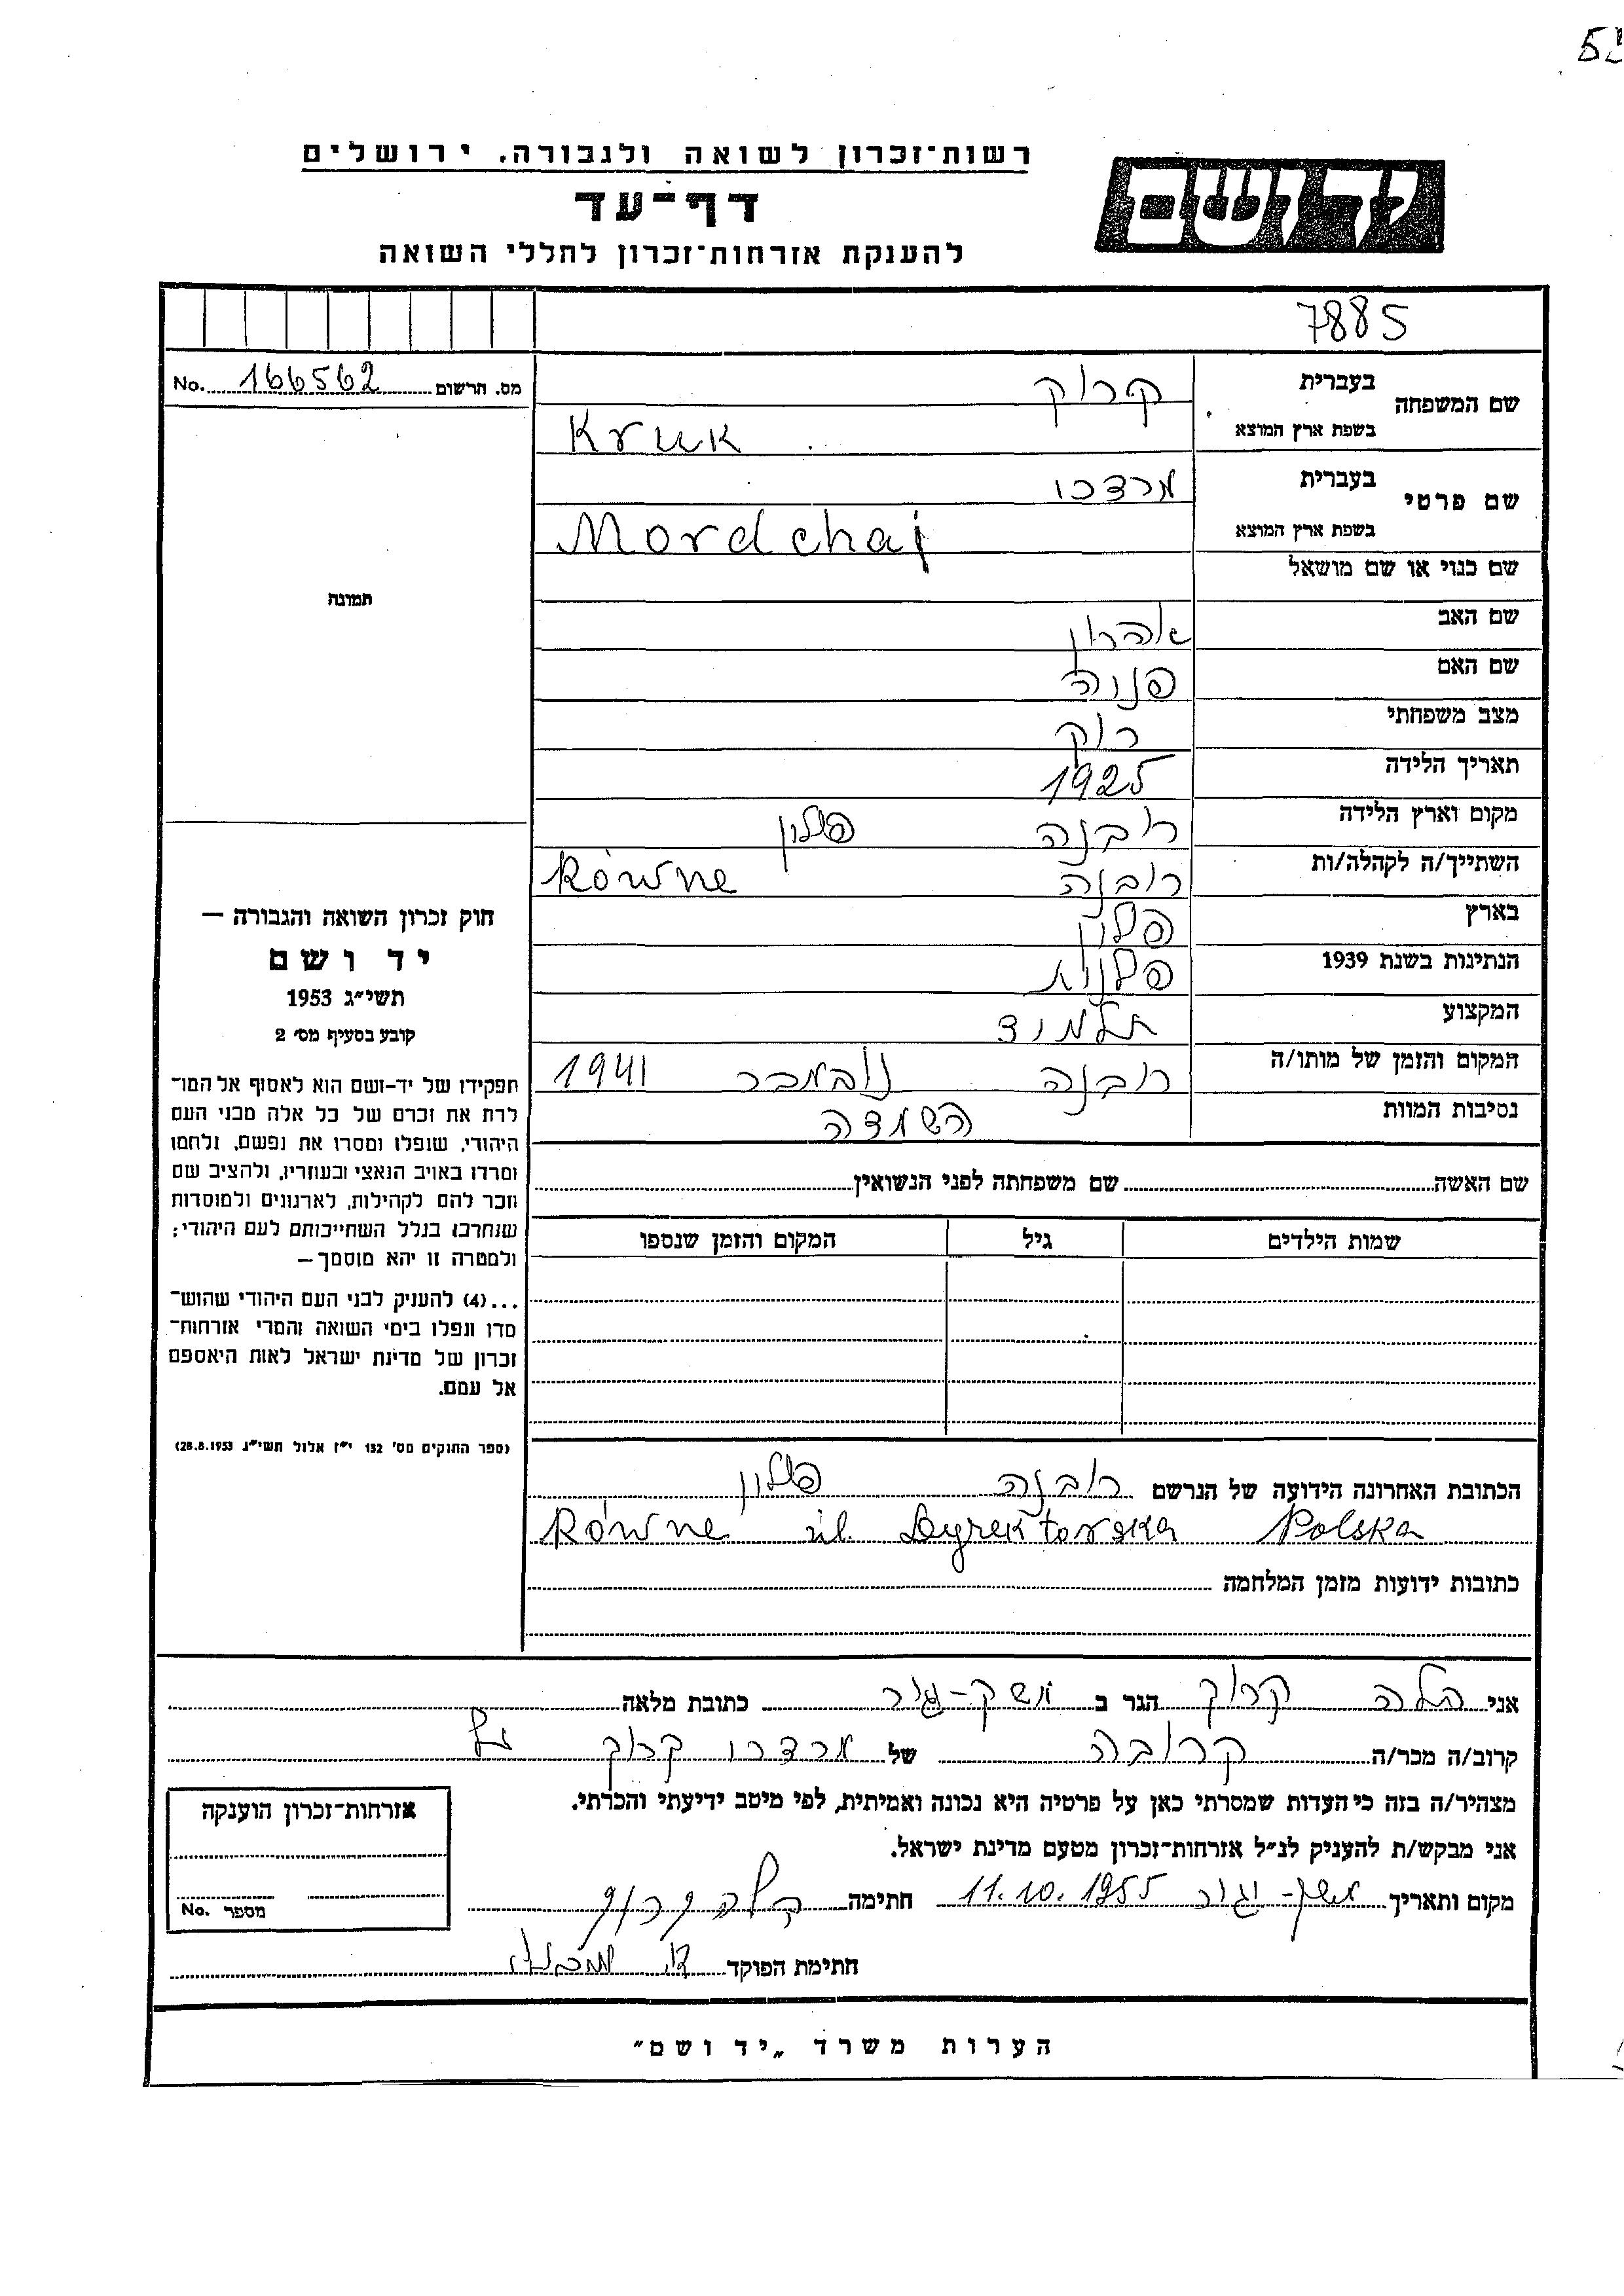 רשות־זכרון לשואה ולגבורה, ירושלים
יד ושם
דף־עד
להענקת אזרחות־זכרון לחללי השואה
7885
מס. הרשום 166562 No.
שם המשפחה
בעברית קרוק
בשפת ארץ המוצא Kruk
שם פרטי
בעברית מרדכי
בשפת ארץ המוצא Mordchaj
שם כנוי או שם מושאל
שם האב אהרון
שם האם פניה
מצב משפחתי רוק
תאריך הלידה 1925
מקום וארץ הלידה רובנה פולין
השתייך/ה לקהלה/ות רובנה Równe
בארץ פולין
הנתינות בשנת 1939 פולנית
המקצוע תלמיד
המקום והזמן של מותו/ה רובנה נובמבר 1941
נסיבות המוות השמדה
שם האשה שם משפחתה לפני הנשואין
שמות הילדים גיל המקום והזמן שנספו
תמונה
חוק זכרון השואה והגבורה —
יד ושם
תשי״ג 1953
קובע בסעיף מס׳ 2
תפקידו של יד־ושם הוא לאסוף אל המו־
לדת את זכרם של כל אלה מבני העם
היהודי, שנפלו ומסרו את נפשם, נלחמו
ומרדו באויב הנאצי ובעוזריו, ולהציב שם
וזכר להם לקהילות, לארגונים ולמוסדות
שנחרבו בגלל השתייכותם לעם היהודי;
ולמטרה זו יהא מוסמך —
...(4) להעניק לבני העם היהודי שהוש־
מדו ונפלו בימי השואה והמרי אזרחות־
זכרון של מדינת ישראל לאות היאספם
אל עמם.
(ספר החוקים מס׳ 132 י״ז אלול תשי״ג 28.8.1953)
הכתובת האחרונה הידועה של הנרשם רובנה פולין
Równe ul. Dyrektorska Polska
כתובות ידועות מזמן המלחמה
אני הלה קרוק הגר ב משק-יגור כתובת מלאה
קרוב/ה מכר/ה קרובה של מרדכי קרוק
מצהיר/ה בזה כי העדות שמסרתי כאן על פרטיה היא נכונה ואמיתית, לפי מיטב ידיעתי והכרתי.
אני מבקש/ת להעניק לנ״ל אזרחות־זכרון מטעם מדינת ישראל.
מקום ותאריך משק-יגור 11.10.1955 חתימה הלה קרוק
חתימת הפוקד
אזרחות־זכרון הוענקה
מספר No.
הערות משרד „יד ושם״